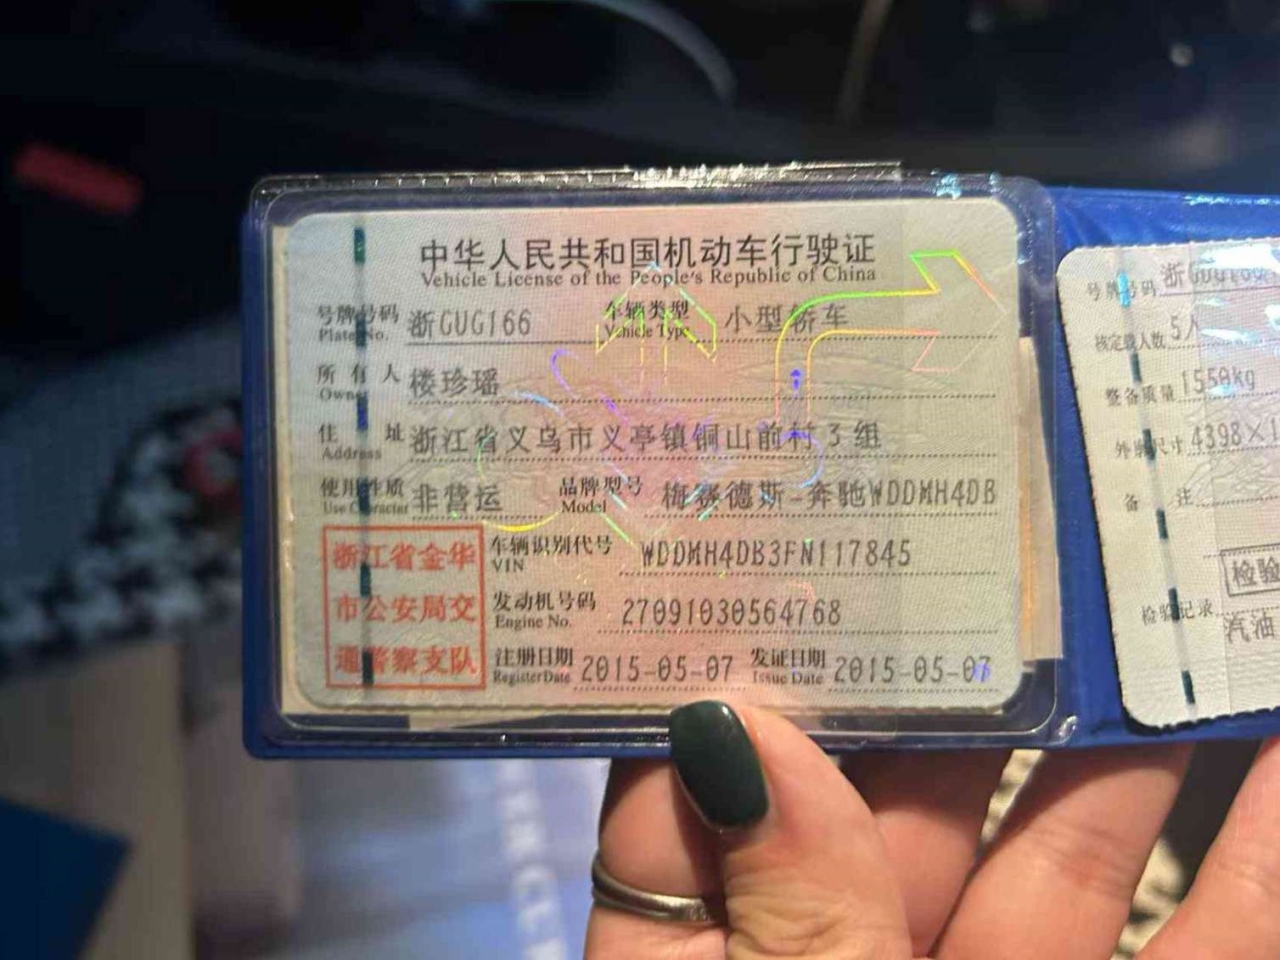 中华人民共和国机动车行驶证
Vehicle License of the People's Republic of China
号牌号码 浙GUG166 车辆类型 小型轿车
Plate No. Vehicle Type
所有人 楼珍瑶
Owner
住址 浙江省义乌市义亭镇铜山前村3组
Address
使用性质 非营运 品牌型号 梅赛德斯-奔驰WDDMH4DB
Use Character Model
浙江省金华
市公安局交
通警察支队
车辆识别代号 WDDMH4DB3FN117845
VIN
发动机号码 27091030564768
Engine No.
注册日期 2015-05-07 发证日期 2015-05-07
Register Date Issue Date
号牌号码 浙GUG166
核定载人数 5人
整备质量 1550kg
外廓尺寸 4398×1
备注
检验
检验记录
汽油